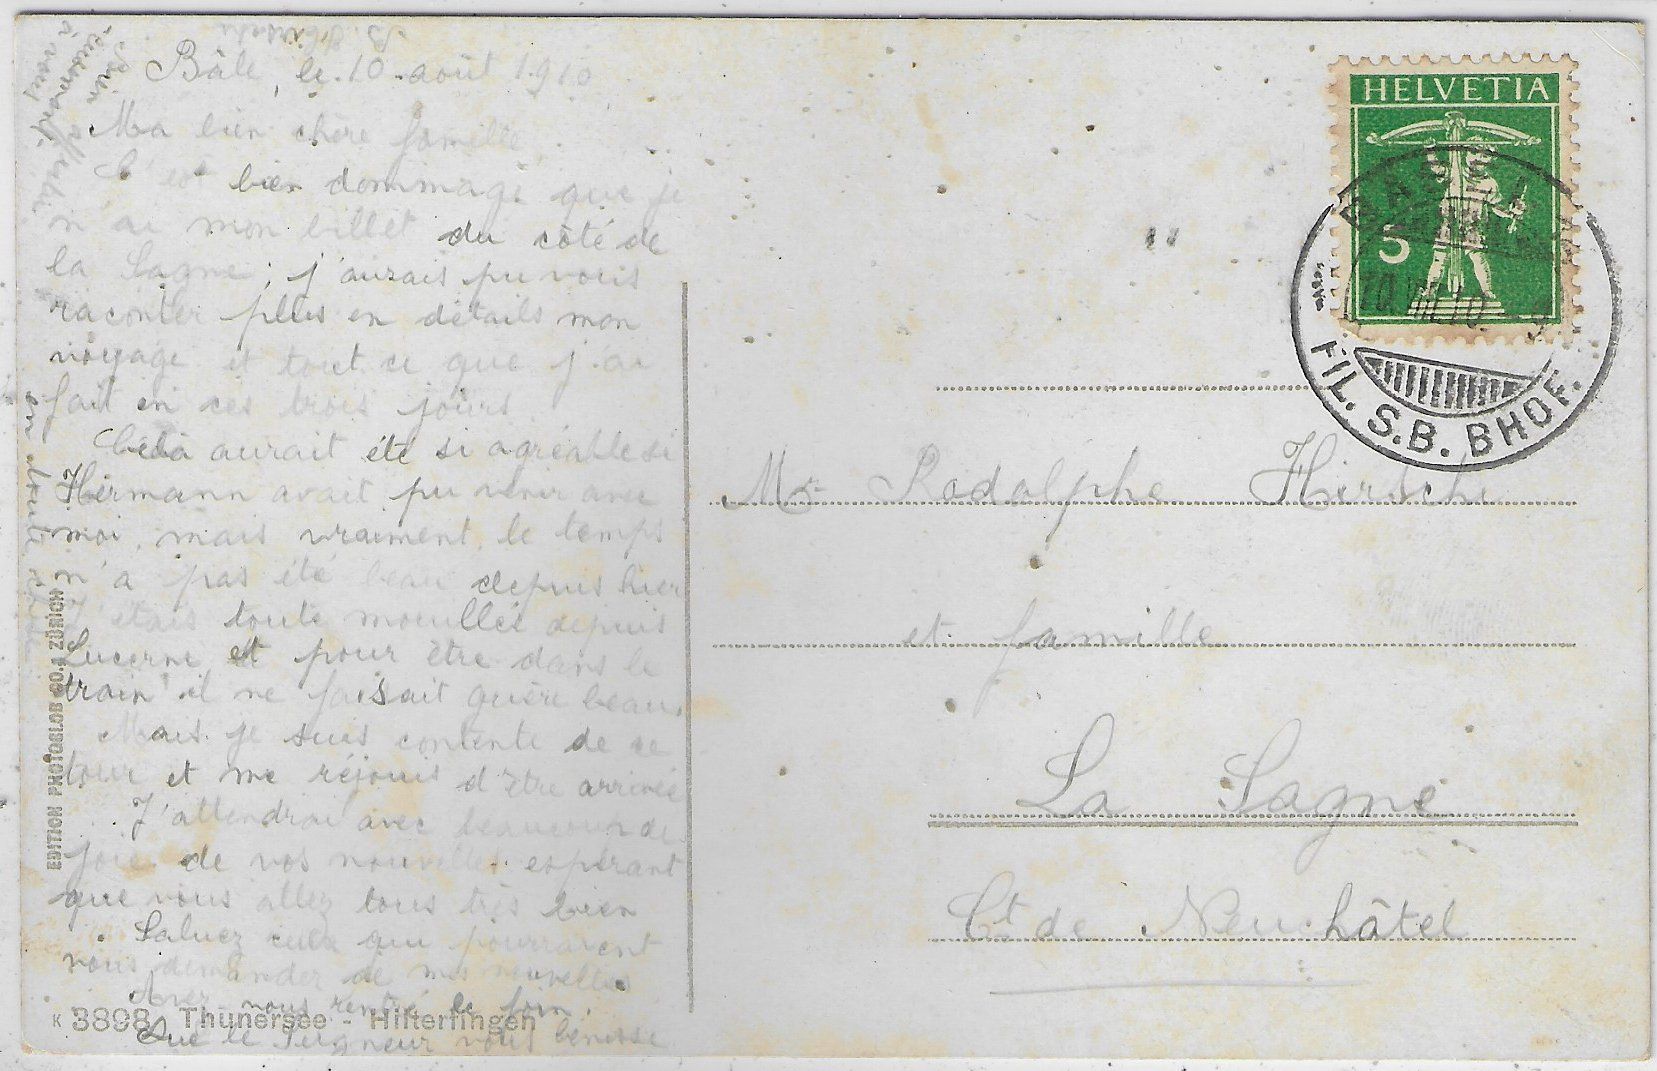 Bâle, le 10 août 1910
Ma bien chère famille,
C'est bien dommage que je
n'ai mon billet du côté de
la Sagne; j'aurais pu vous
raconter plus en détails mon
voyage et tout ce que j'ai
fait en ces trois jours
Cela aurait été si agréable si
Hermann avait pu venir avec
moi, mais vraiment, le temps
n'a pas été beau depuis hier
J'étais toute mouillée depuis
Lucerne, et pour être dans le
train il ne faisait guère beau.
Mais je suis contente de ce
tour et me réjouis d'être arrivée
J'attendrai avec beaucoup de
joie de vos nouvelles espérant
que vous allez tous très bien
Saluez ceux qui pourraient
vous demander de mes nouvelles
Avez vous rentré le foin.
Que le Seigneur vous bénisse
en toute
Bien affectu-
eusement
à vous
B.
EDITION PHOTOGLOB CO., ZÜRICH
K 3898 Thunersee - Hilterfingen
HELVETIA
5
BASEL
10.VIII.10. 9
FIL. S.B. BHOF.
Mr Rodolphe Hirschi
et famille
La Sagne
Ct de Neuchâtel